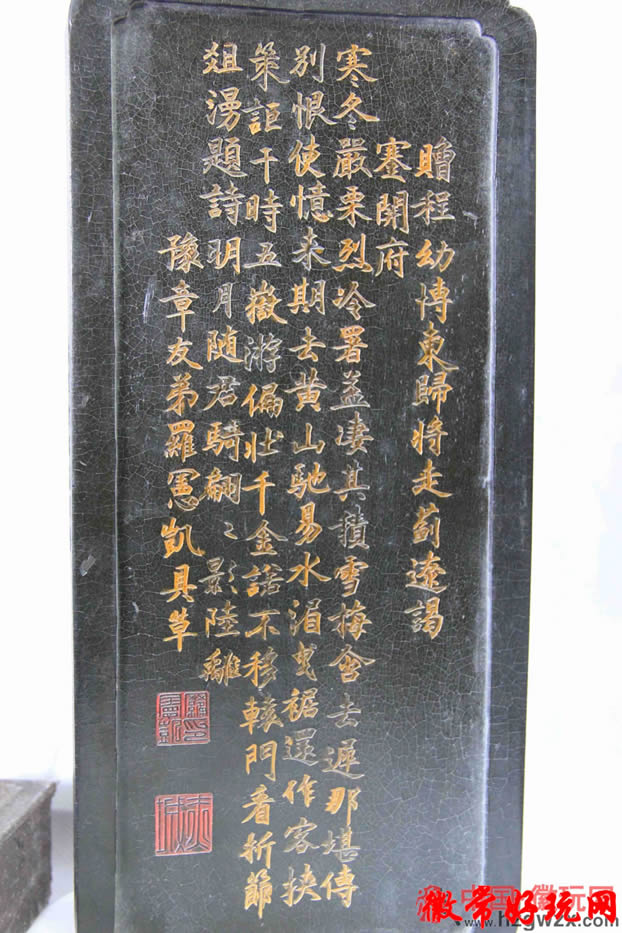 贈程幼博東歸將走薊遼謁
蹇開府
寒冬嚴栗烈冷署益淒其積雪梅舍去遲那堪傳
別恨使憶來期去黃山馳易水湄曳裾還作客挾
策詎干時五嶽游偏壯千金諾不移轅門看折節
俎漫題詩明月随君騎翩〻影陸離
豫章友弟羅憲凱具草
徽常好玩网
www.hzgwzx.com